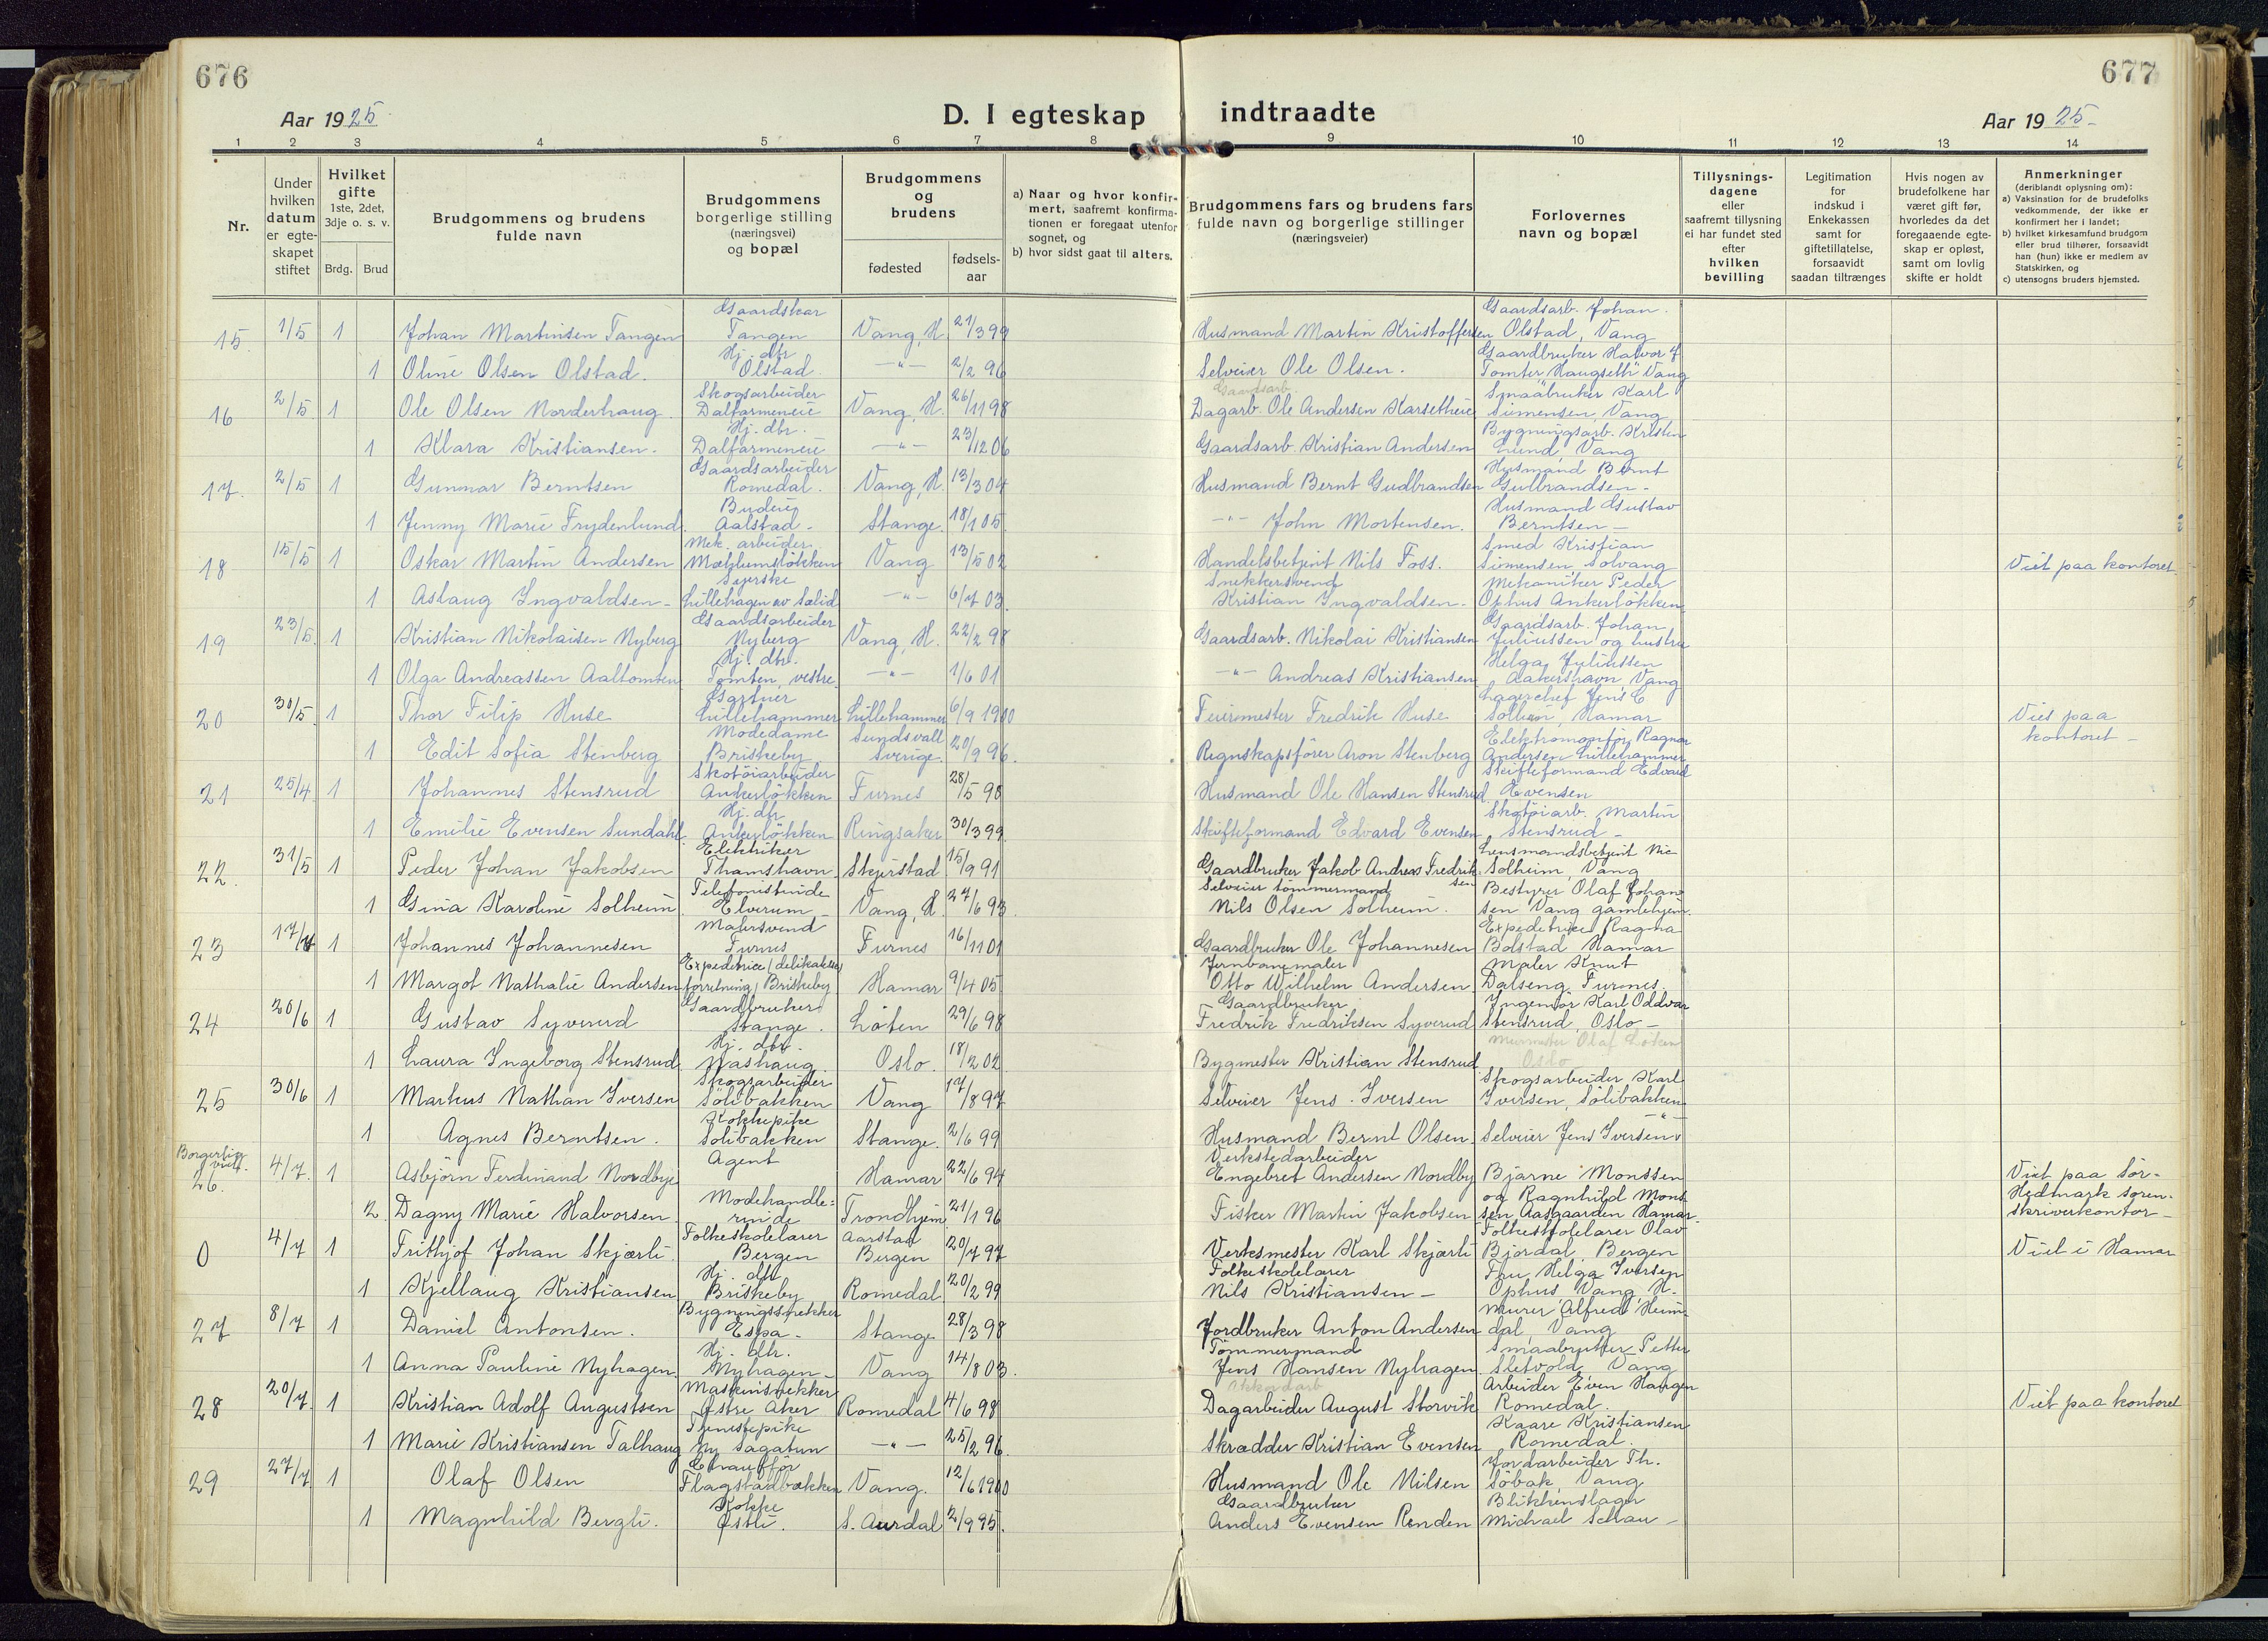 676
677
Aar 1925
D. I egteskap indtraadte
Aar 1925
1 2 3 4 5 6 7 8 9 10 11 12 13 14
Nr.
Under hvilken datum er egteskapet stiftet
Hvilket gifte 1ste, 2det, 3dje o. s. v.
Brdg. Brud
Brudgommens og brudens fulde navn
Brudgommens borgerlige stilling (næringsvei) og bopæl
Brudgommens og brudens
fødested
fødselsaar
a) Naar og hvor konfirmert, saafremt konfirmationen er foregaat utenfor sognet, og
b) hvor sidst gaat til alters.
Brudgommens fars og brudens fars fulde navn og borgerlige stillinger (næringsveier)
Forlovernes navn og bopæl
Tillysningsdagene eller saafremt tillysning ei har fundet sted efter hvilken bevilling
Legitimation for indskud i Enkekassen samt for giftetillatelse, forsaavidt saadan tiltrænges
Hvis nogen av brudefolkene har været gift før, hvorledes da det foregaaende egteskap er opløst, samt om lovlig skifte er holdt
Anmerkninger (deriblandt oplysning om):
a) Vaksination for de brudefolks vedkommende, der ikke er konfirmert her i landet;
b) hvilket kirkesamfund brudgom eller brud tilhører, forsaavidt han (hun) ikke er medlem av Statskirken, og
c) utensogns bruders hjemsted.
15. 1/5 1 Johan Martinsen Tangen Gaardskar Tangen Vang, H. 21/3 99 Husmand Martin Kristoffersen Gaardsarb. Johan Olstad, Vang
1 Oline Olsen Olstad. Hj. dtr Olstad. -"- 2/2 96 Selveier Ole Olsen. Gaardbruker Halvor J Tomter "Haugseth" Vang
16 2/5 1 Ole Olsen Norderhaug. Skogsarbeider Dalfarmeneie Vang, H. 26/11 98 Gaardsarb. Dagarb. Ole Andersen Karsetheie Smaabruker Karl Simensen, Vang
1 Klara Kristiansen. Hj. dtr. Dalfarmeneie -"- 23/12 06 Gaardsarb Kristian Andersen Bygningsarb. Kristen Lund, Vang
17. 2/5 1 Gunnar Berntsen Gaardsarbeider Romedal. Vang, H. 13/3 04 Husmand Bernt Gudbrandsen Husmand Bernt Gulbrandsen -
1 Jenny Marie Frydenlund. Budeie Aalstad - Stange. 18/1 05. -"- John Mortensen. Husmand Gustav Berntsen -
18 15/5 1 Oskar Martin Andersen Mek. arbeider. Mælumsløkken Vang 13/5 02 Handelsbetjent Nils Foss. Smed Kristian Simensen, Solvang Viet paa kontoret.
1 Aslaug Yngvaldsen - Syerske Lillehagen av Sælid -"- 6/7 03. Snekkersvend Kristian Yngvaldsen - Mekaniker Peder Ophus Ankerløkken
19 23/5. 1 Kristian Nikolaisen Nyberg Gaardsarbeider Nyberg Vang, H. 22/2 98 Gaardsarb. Nikolai Kristiansen Gaardsarb. Johan Juliussen og hustru
1 Olga Andreassen Aaltomten Hj. dtr. Tomten, vestre. -"- 1/6 01 -"- Andreas Kristiansen Helga Juliussen Aakershavn Vang
20 30/5. 1 Thor Filip Huse Gartner Lillehammer Lillehammer 6/9 1900 Feiermester Fredrik Huse Lagerchef Jens E Solheim, Hamar Vies paa kontoret -
1 Edit Sofia Stenberg Modedame Briskeby Sundsvall Sverige. 20/9 96. Regnskapsfører Aron Stenberg Elektromontør Ragnar Andersen Lillehammer
21 25/4. 1 Johannes Stensrud Skotøiarbeider Ankerløkken Furnes 28/5 90 Husmand Ole Hansen Stensrud. Skifteformand Edvard Evensen
1 Emilie Evensen Sundahl Hj. dtr Ankerløkken Ringsaker 30/3 99. Skifteformand Edvard Evensen Skotøiarb. Martin Stensrud -
22. 31/5 1 Peder Johan Jakobsen Elektriker Thamshavn Skjerstad 15/9 91 Gaardbruker Jakob Andreas Fredriksen Lensmandsbetjent Nic Solheim, Vang
1 Gina Karoline Solheim Telefonistinde Elverum - Vang, H. 27/6 93. Selveier tømmermand Nils Olsen Solheim. Bestyrer Olaf Johansen Vang gamlehjem.
23 17/ 1 Johannes Johannesen Malersvend Furnes Furnes 16/11 01 Gaardbruker Ole Johannesen Expeditrice Ragna Bolstad Hamar
1 Margot Nathalie Andersen Expeditrice (delikatesseforretning) Briskeby Hamar 9/4 05. Jernbanemaler Otto Wilhelm Andersen Maler Knut Dalseng, Furnes.
24 20/6 1 Gustav Syverud Gaardbruker Stange. Løten 29/6 98 Gaardbruker Fredrik Fredriksen Syverud Ingeniør Karl Oddvar Stensrud, Oslo -
1 Laura Ingeborg Stensrud Hj. dtr. Nashaug. Oslo. 18/2 02. Bygmester Kristian Stensrud. Murmester Olaf Løken Oslo
25 30/6 1 Markus Nathan Iversen Skogsarbeider Sølibakken Vang 17/8 97 Selveier Jens. Iversen Skogsarbeider Karl Iversen, Sølibakken
1 Agnes Berntsen. Kokkepike Solibakken Stange. 2/6 99 Husmand Bernt Olsen. Selveier Jens Iversen -"-
Borgerlig viet. 26. 4/7. 1 Asbjørn Ferdinand Nordbye Agent Hamar 22/6 94 Verkstedarbeider Engebret Andersen Nordby Bjarne Monssen Viet paa Sør-Hedmark soren-skriverkontor -
2. Dagny Marie Halvorsen Modehandlerinde Trondhjem 21/1 96 Fisker Martin Jakobsen og Ragnhild Monssen Aasgaarden Hamar.
0 4/7 1 Frithjof Johan Skjærli. Folkeskolelærer Bergen Aarstad Bergen 20/7 97 Verksmester Karl Skjærli Folkeskolelærer Olav Bjordal, Bergen Viet i Hamar
1 Kjellaug Kristiansen Hj. dtr Briskeby Romedal 20/2 99 Folkeskolelærer Nils Kristiansen - Fru Helga Iversen Ophus Vang H.
27 8/7 1 Daniel Antonsen. Bygningssnekker Espa - Stange 28/3 98 Jordbruker Anton Andersen Murer Alfred Heimdal, Vang
1 Anna Pauline Nyhagen. Hj. dtr. Nyhagen - Vang 14/8 03. Tømmermand Jens Hansen Nyhagen Smaabruker Petter Sletvold, Vang
28 20/7. 1 Kristian Adolf Augustsen Maskinsnekker Østre Aker Romedal 4/6 98 Akkordarb Dagarbeider August Storvik Arbeider Even Haugen Romedal. Viet paa kontoret
1 Marie Kristiansen Talhaug Tjenestepike Ny Sagatun -"- 25/2 96. Skrædder Kristian Evensen Kaare Kristiansen Romedal.
29 27/7 1 Olaf Olsen Chauffør Flagstadbakken Vang. 12/6 1900 Husmand Ole Nilsen Jordarbeider Th. Søbak, Vang
1 Magnhild Bergli. Kokke Østli. S. Aurdal 2/9 95. Gaardbruker Anders Evensen Renden Blikkenslager Michael Schau -